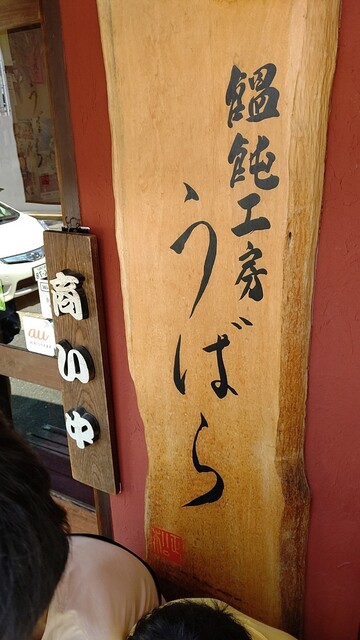 饂飩工房
うばら
商い中
au